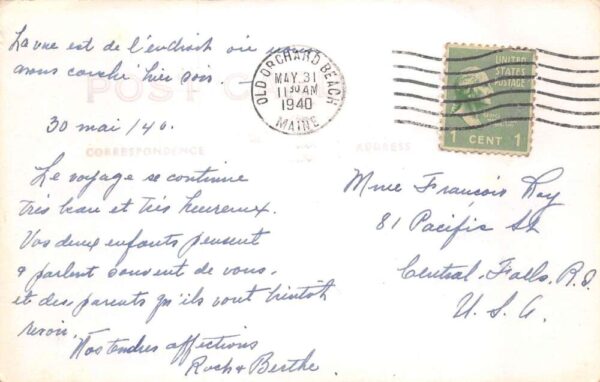 La vue est de l'endroit où nous
avons couché hier soir.
POST C
OLD ORCHARD BEACH
MAY 31
11 30 AM
1940
MAINE
UNITED
STATES
POSTAGE
1 CENT 1
30 mai / 40.
CORRESPONDENCE
ADDRESS
Le voyage se continue
très beau et très heureux.
Vos deux enfants pensent
& parlent souvent de vous.
et des parents qu'ils vont bientôt
revoir.
Nos tendres affections
Roch & Berthe
Mme François Roy
81 Pacific St
Central-Falls, R.I.
U.S.A.